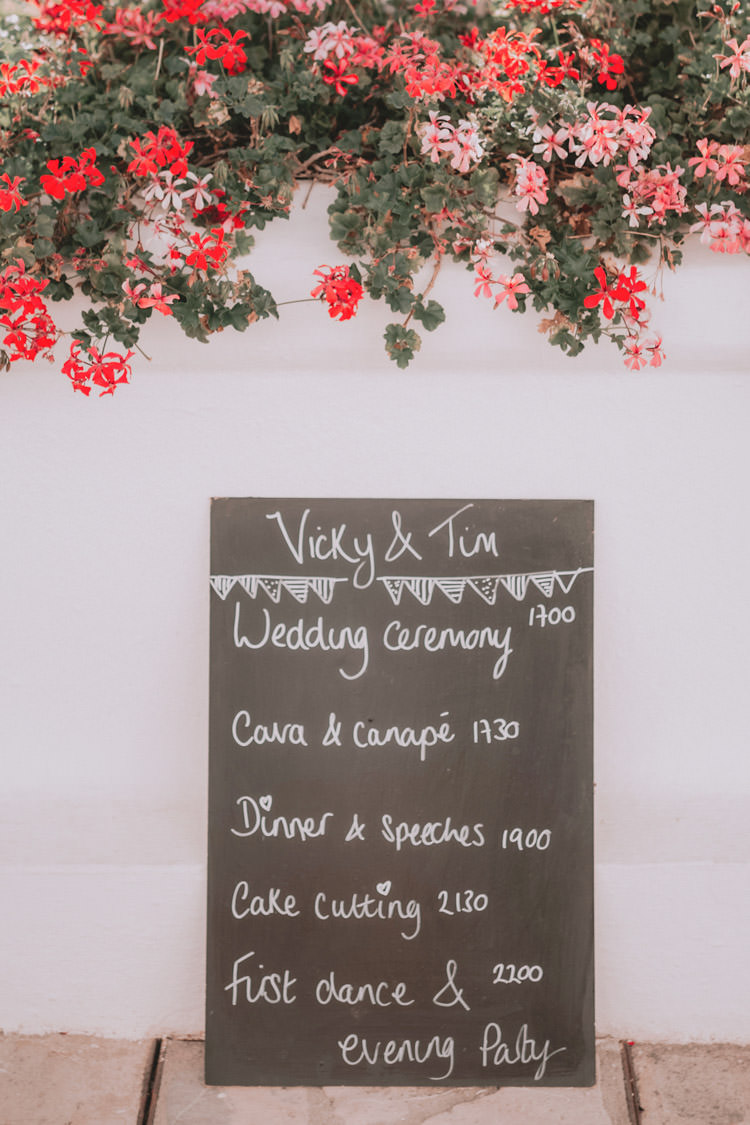 Vicky & Tim
Wedding Ceremony 1700
Cava & Canapé 1730
Dinner & Speeches 1900
Cake Cutting 2130
First dance & 2200
evening Party